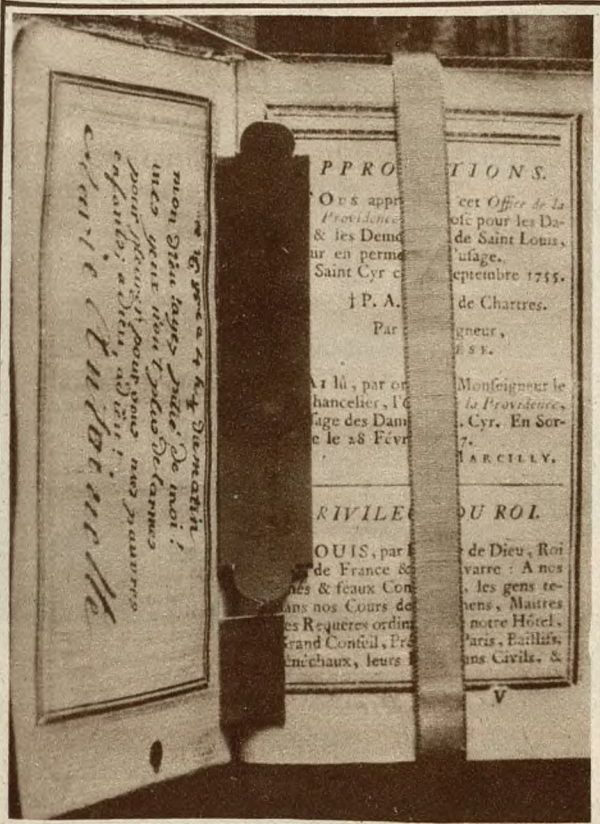 à 4 h ½ du matin
mon Dieu ! ayez pitié de moi !
mes yeux n'ont plus de larmes
pour pleurer pour vous mes pauvres
enfants ; adieu, adieu !
Marie Antoinette
PPRO TIONS.
OUS appr cet Office de la
Providence ose pour les Da-
& les Demo de Saint Louis,
ur en perme l'usage.
Saint Cyr c eptembre 1755.
† P. A. de Chartres.
Par gneur,
ESE.
AI lû, par or Monseigneur le
hancelier, l'O la Providence,
sage des Dam . Cyr. En Sor-
e le 28 Févr 7.
MARCILLY.
RIVILEG DU ROI.
OUIS, par de Dieu, Roi
de France & varre : A nos
més & féaux Con , les gens te-
ans nos Cours de mens, Maîtres
es Requêtes ordin notre Hôtel,
Grand Conseil, Pré Paris, Baillifs,
énéchaux, leurs ans Civils, &
V